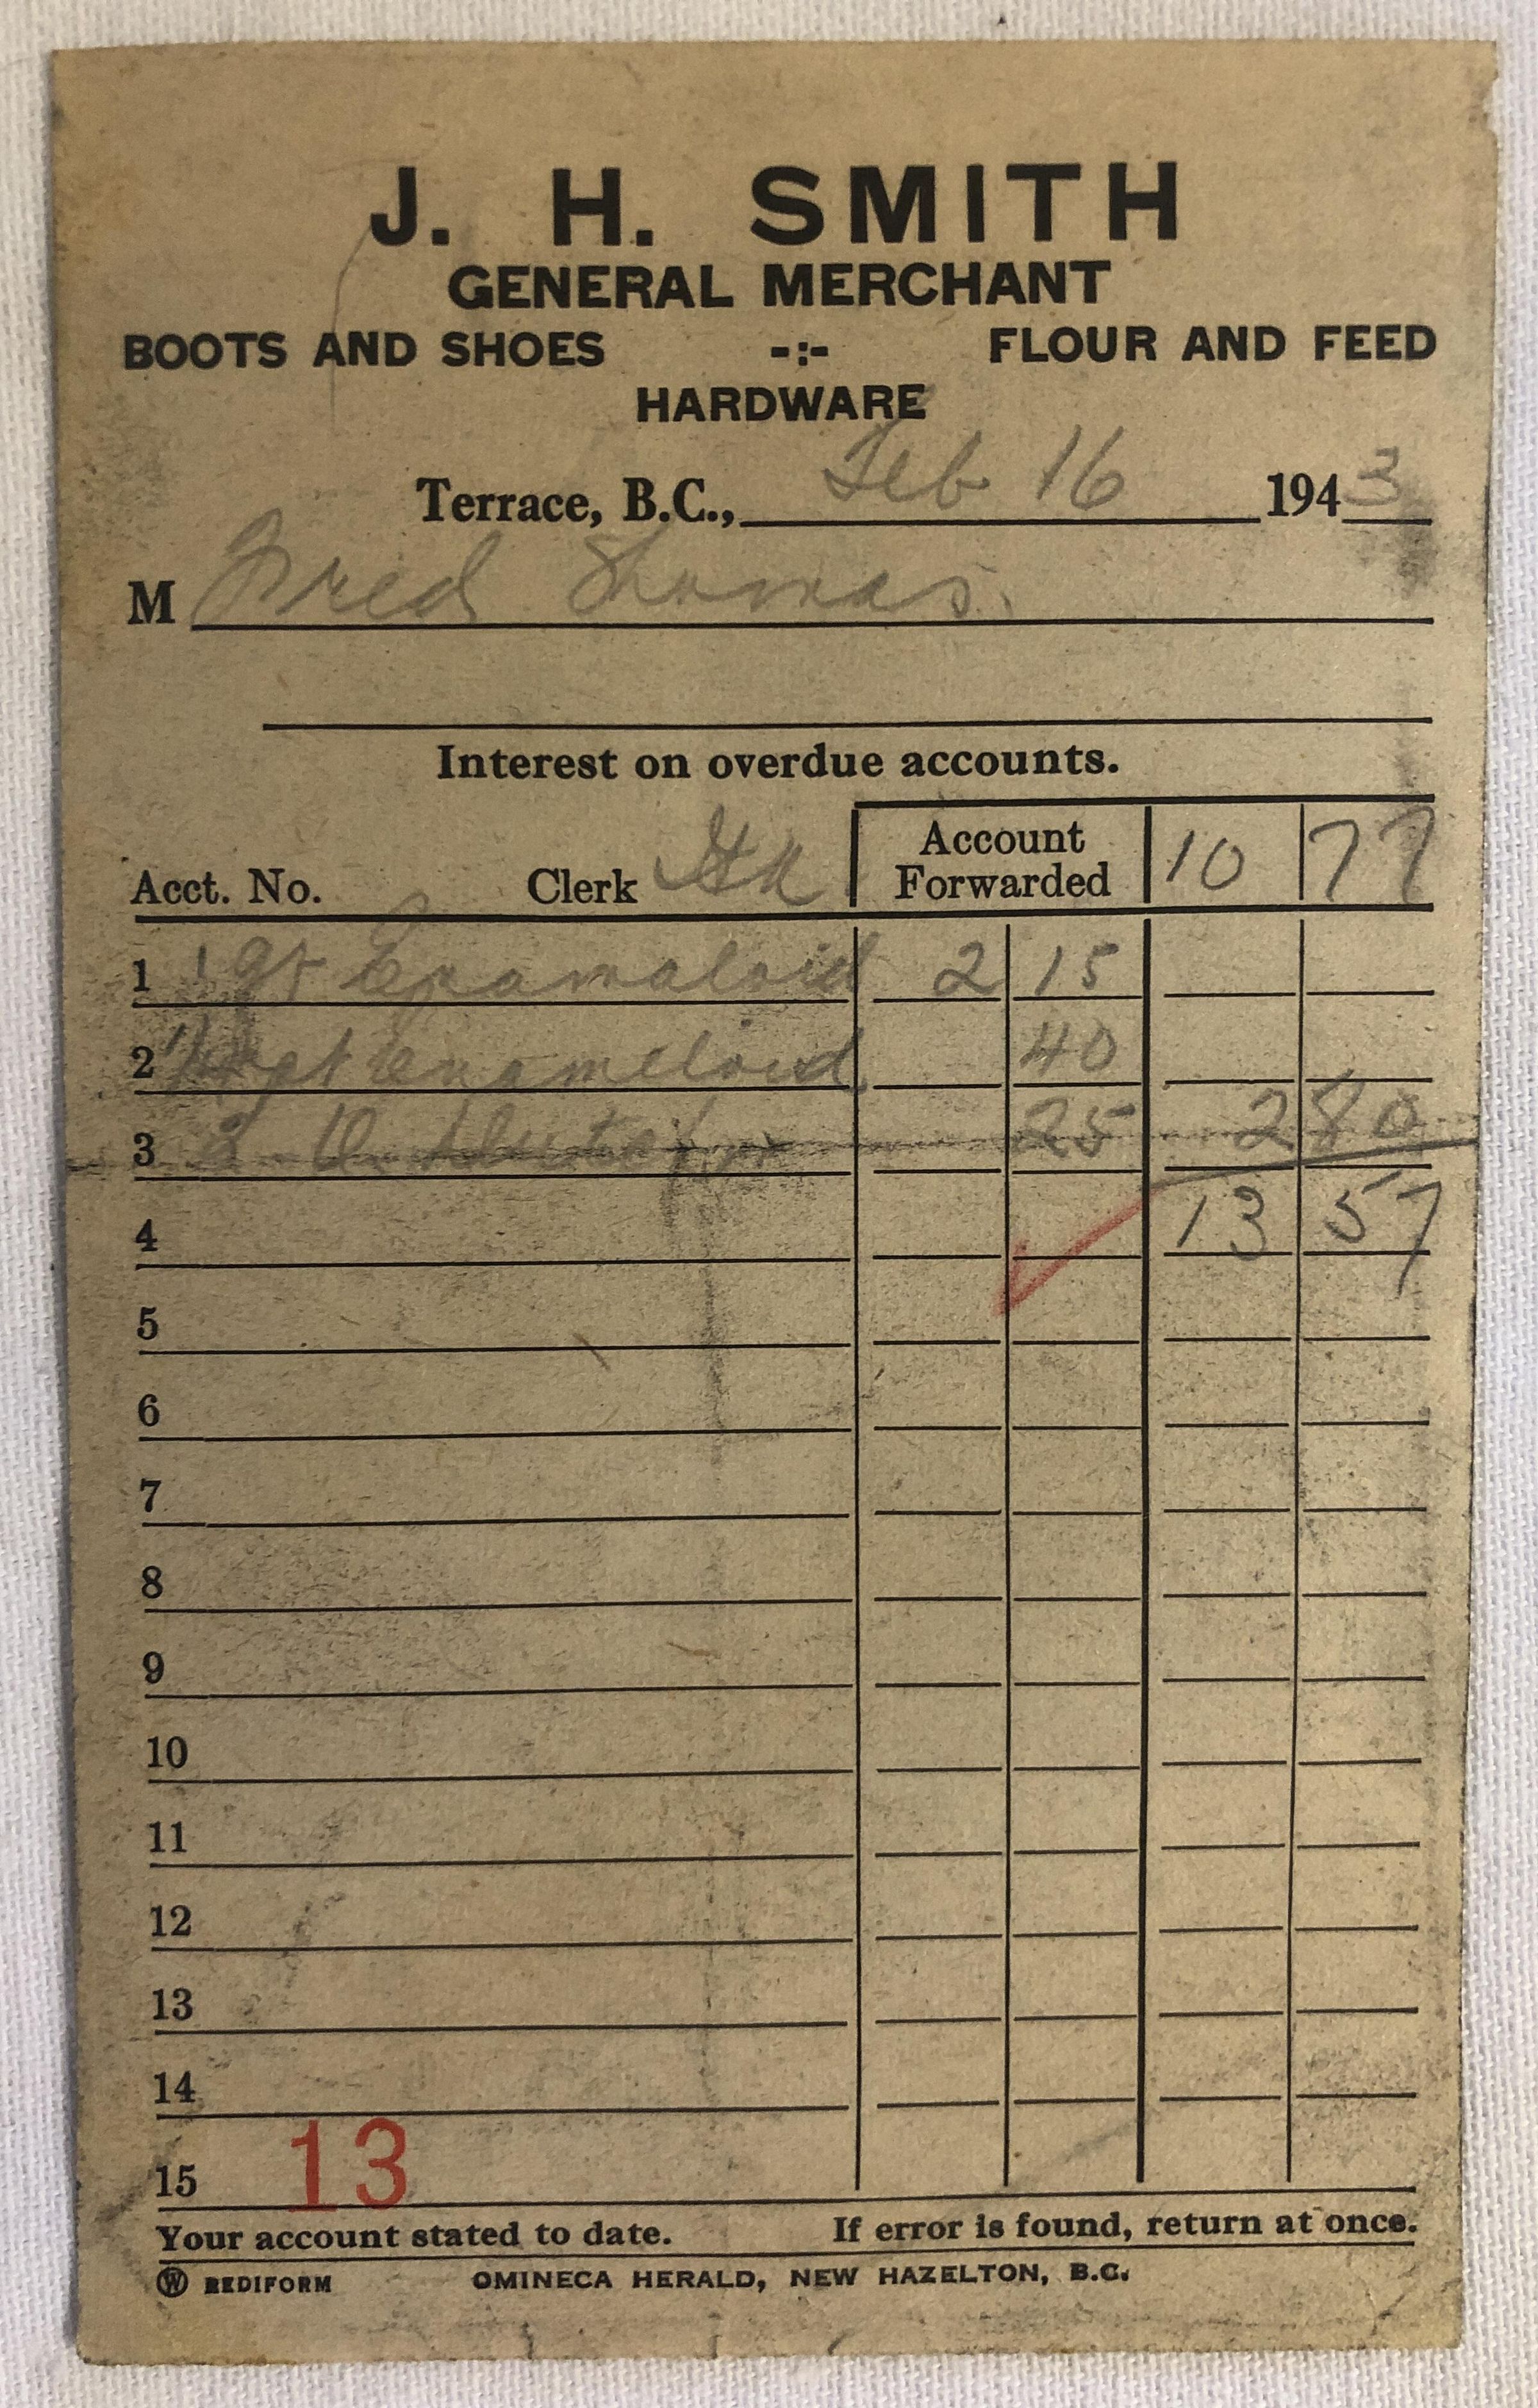 J. H. SMITH
GENERAL MERCHANT
BOOTS AND SHOES -:- FLOUR AND FEED
HARDWARE
Terrace, B.C., Feb 16 1943
M Fred Thomas.
Interest on overdue accounts.
Acct. No. Clerk Account Forwarded 10 77
1 1 qt Enamaloid 2 15
2 Enameloid 40
3 25 2 80
4 13 57
5
6
7
8
9
10
11
12
13
14
15 13
Your account stated to date. If error is found, return at once.
W REDIFORM OMINECA HERALD, NEW HAZELTON, B.C.